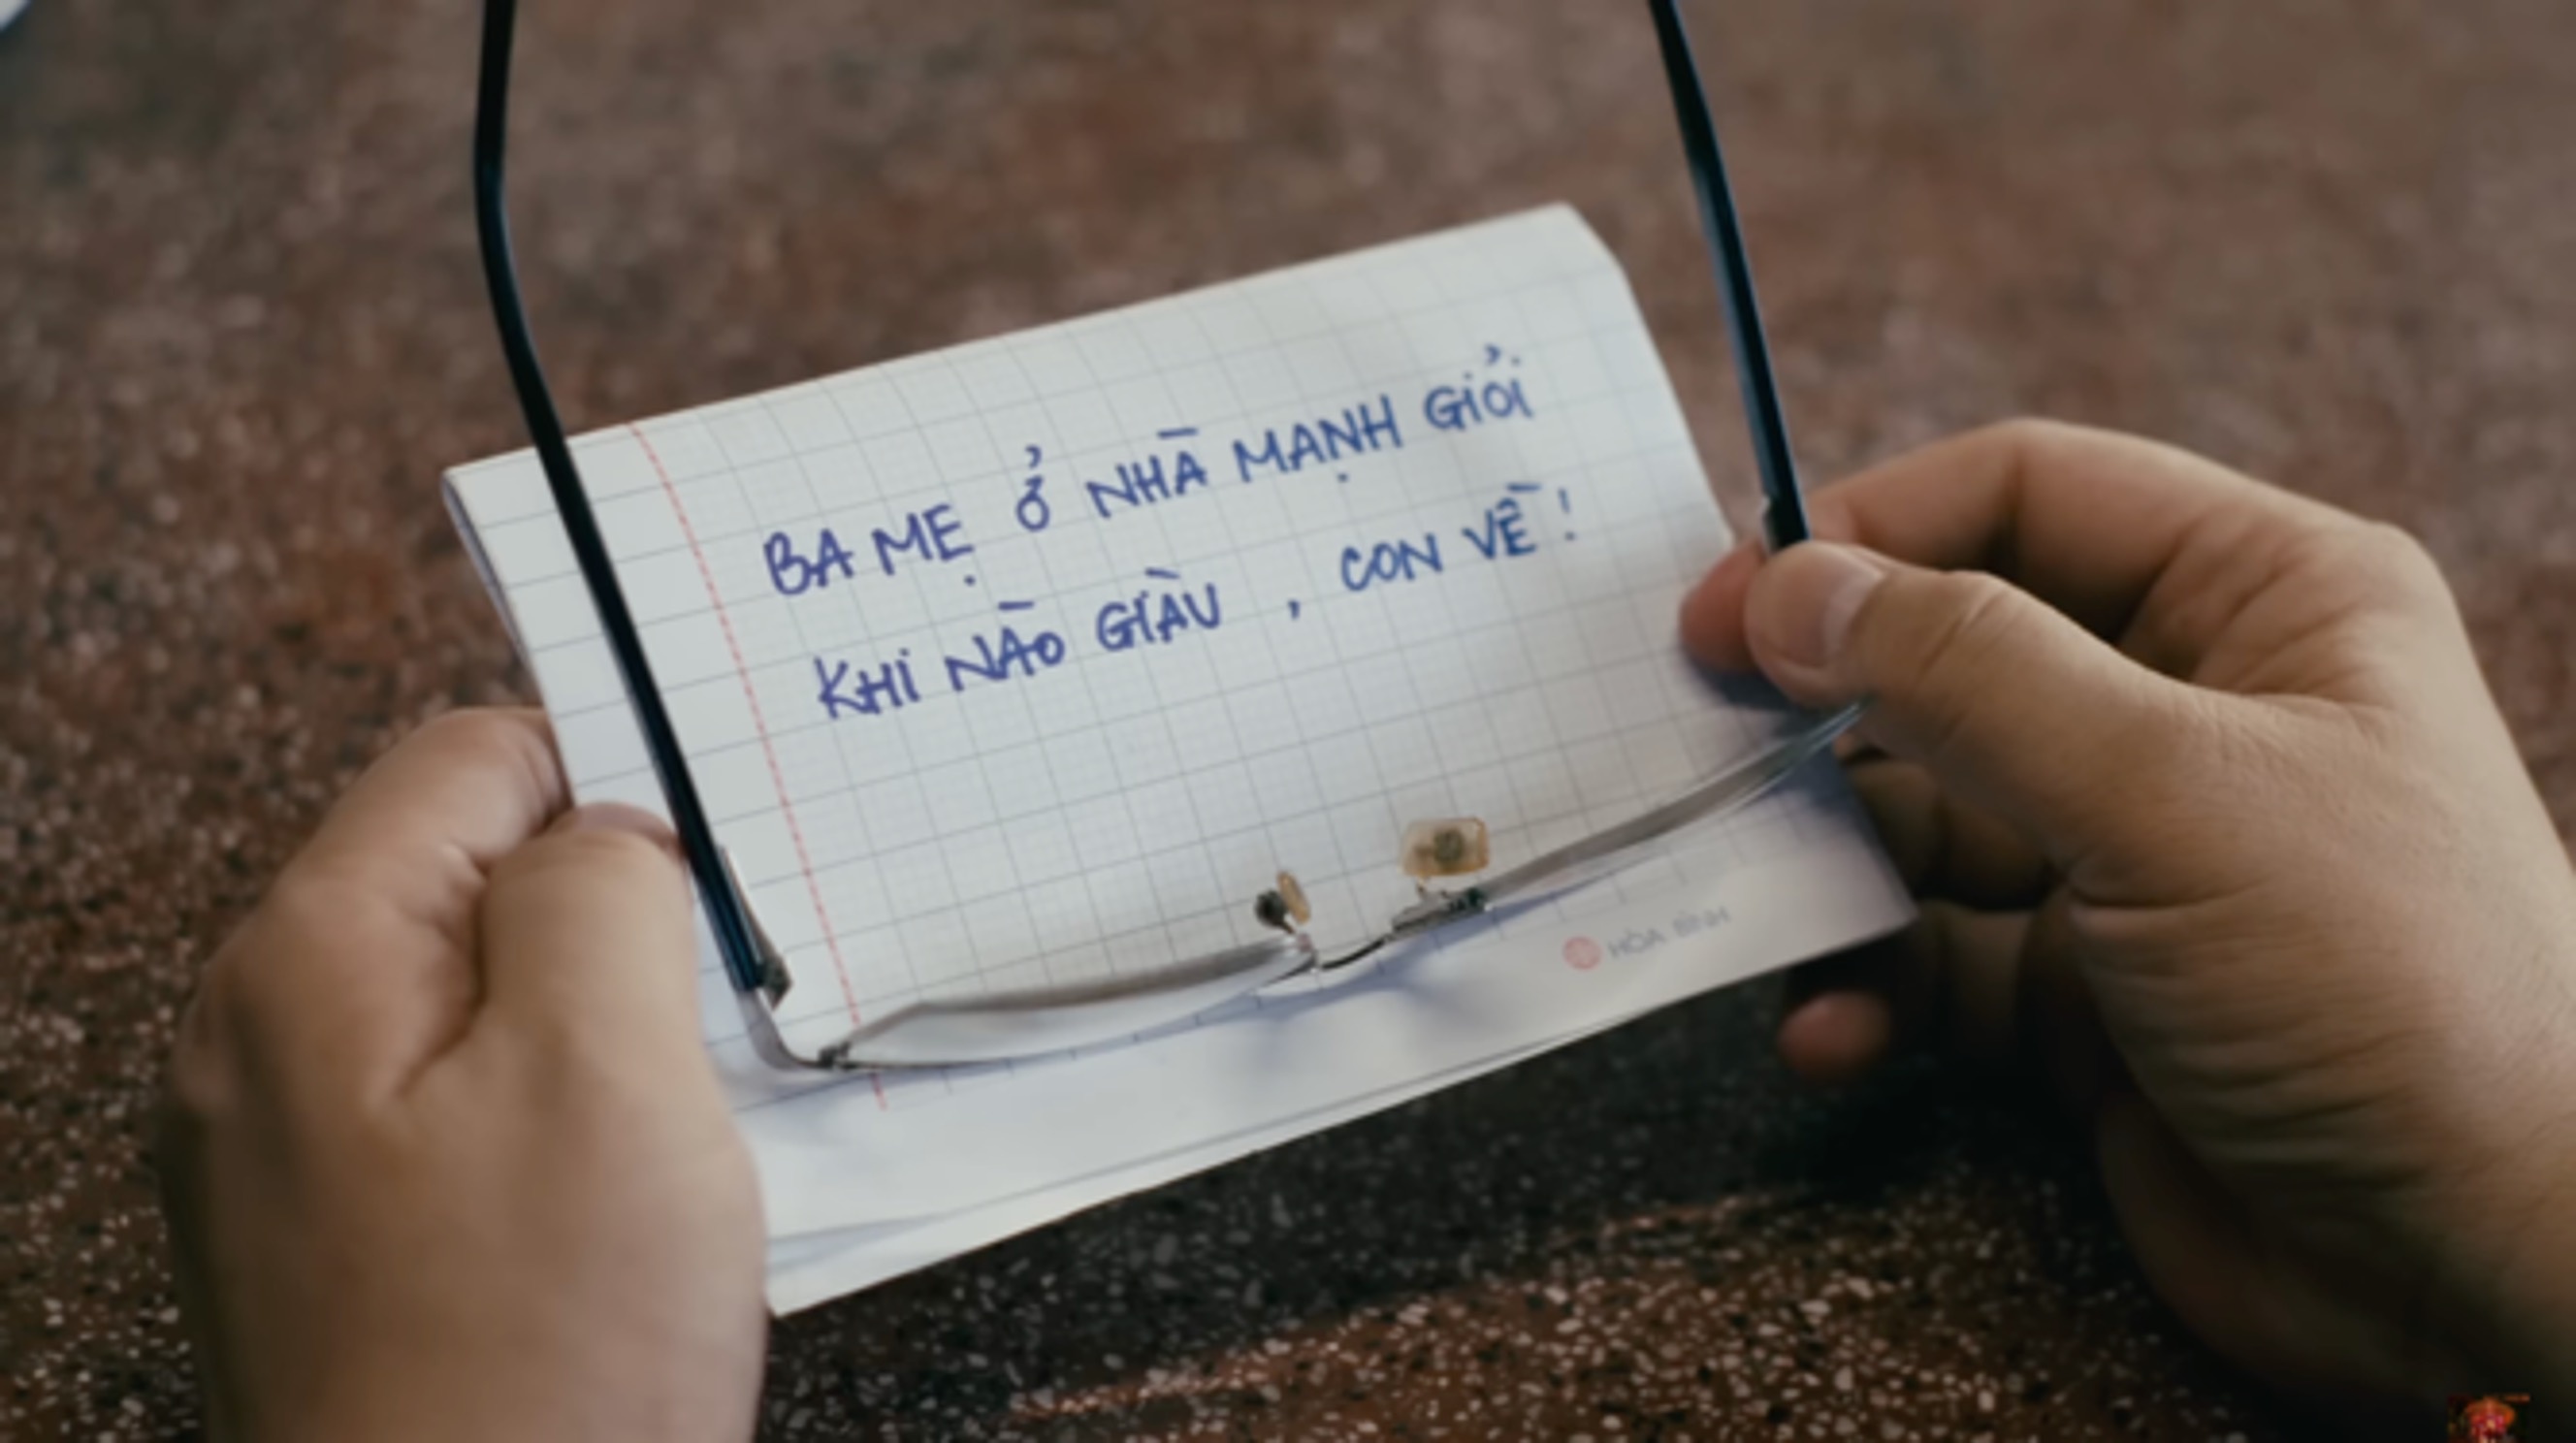 BA MẸ Ở NHÀ MẠNH GIỎI
KHI NÀO GIÀU , CON VỀ !
HÒA BÌNH